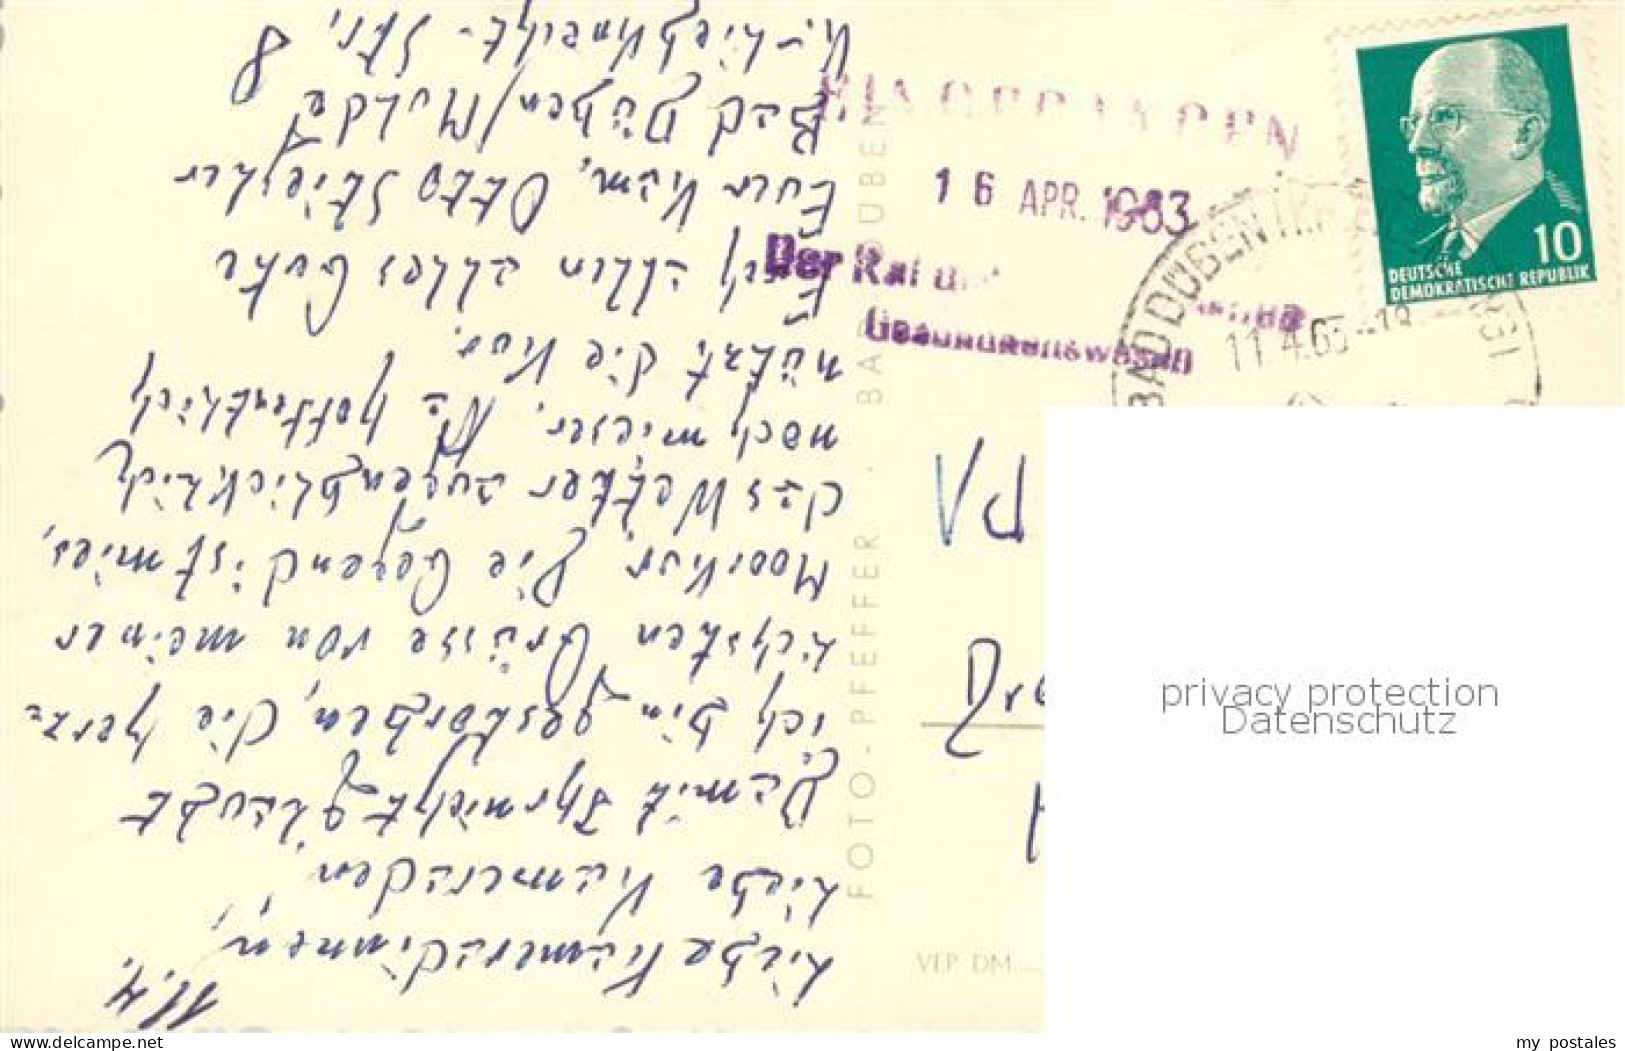 11.4.
Liebe Kameradinnen,
Liebe Kameraden
Damit Ihr nicht glaubt
ich bin gestorben, die herz=
lichsten Grüsse von meiner
Moorkur. Die Gegend ist mies,
das Wetter augenblicklich
noch mieser. Na hoffentlich
nützt die Kur.
Euch allen alles Gute
Euer Kam. Otto Stiegler
Bad Düben/Mulde
K.-Liebknecht-Str. 8
FOTO-PFEFFER · BAD DÜBEN
EINGEGANGEN
16 APR. 1963
Der Rat der
Gesundheitswesen
BAD DÜBEN
11.4.63-18
10
DEUTSCHE
DEMOKRATISCHE REPUBLIK
PA
VEP DM
privacy protection
Datenschutz
my postales